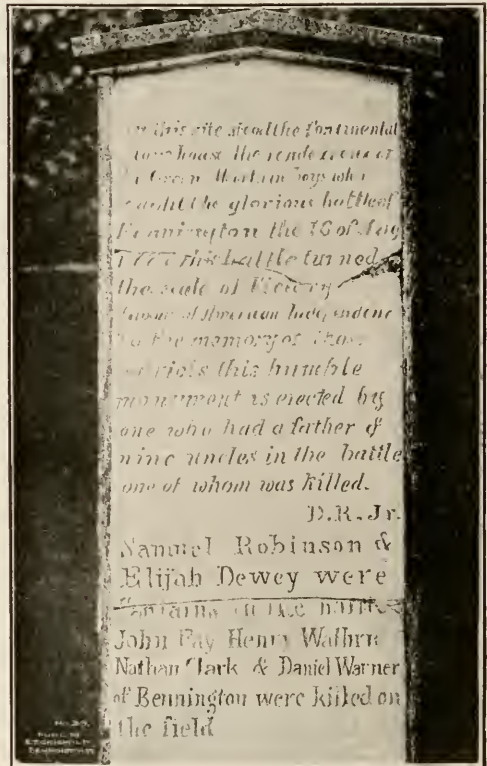 this site stood the Continental
house the rendezvous of
Green Mountain boys who
fought the glorious battle of
Bennington the 16 of Aug
1777 this battle turned
the scale of Victory
favour of American Independenc
To the memory of those
patriots this humble
monument is erected by
one who had a father &
nine uncles in the battle
one of whom was killed.
D.R. Jr.
Samuel Robinson &
Elijah Dewey were
Captains in the battle
John Fay Henry Walbrn
Nathan Clark & Daniel Warner
of Bennington were killed on
the field